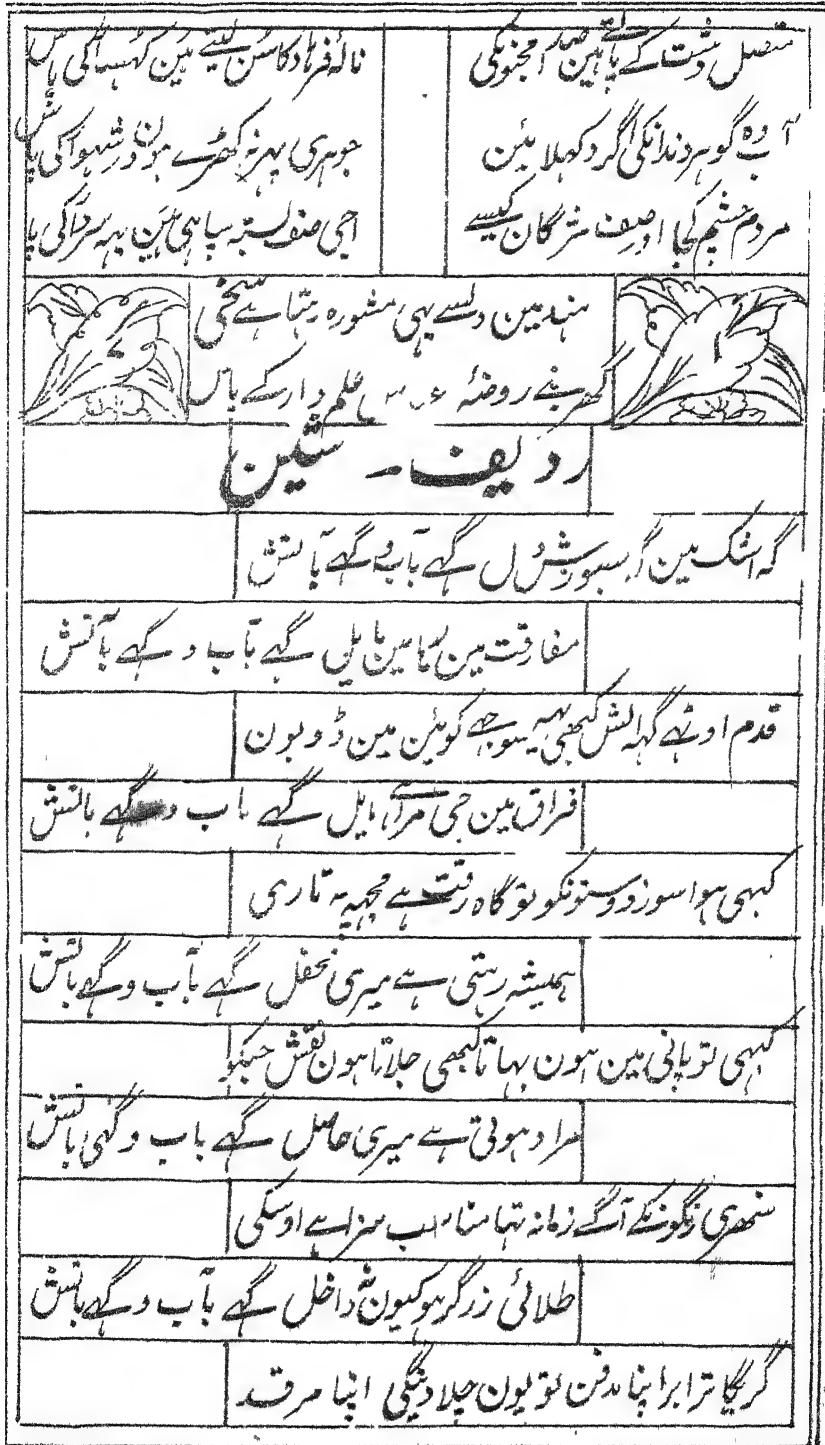 متصل دشت کے پاتے ہین صدا مجنونکی
نالۂ فرہاد کا سن لیتے ہین کہسار کی پاس
آب وہ گوہر دندانکی اگر دکھلائین
جوہری پہر نہ کھڑے ہون در شہوار کی پاس
مردم چشم کجا اور صف مژگان کیسے
اجی صف بستہ سپاہی ہین یہہ سردار کی پاس
ہند مین دلسے یہی مشورہ رہتا ہے سخی
گھر بنے روضۂ علم دار کے پاس
ردیف ۔ شین
گہ اشک مین گہہ بسوزش دل گہے بآب و گہے بآتش
مفارقت مین ہے گہے بآب و گہے بآتش
قدم اوٹہے گہہ کبھی یہہ سوجہے کوئین مین ڈوبون
فراق مین جی مرا ہے مایل گہے بآب و گہے بآتش
کبہی ہوا سوز دوستونکو تو گاہ رقت ہے مجہہ پہ تاری
ہمیشہ رہتی ہے میری محفل گہے بآب و گہے بآتش
کبہی تو پانی مین ہون بہاتا کبھی جلاتا ہون نقش حبکو
مراد ہوتی ہے میری حاصل گہے بآب و گہی بآتش
سنھری رنگونکے آگے زمانہ تہا مناسب سزا ہے اوسکی
طلائی زرگر ہو کیون نہ داخل گہے بآب و گہے بآتش
گریگا ترابر اپنا مدفن تو یون جلا دینگی اپنا مرقد